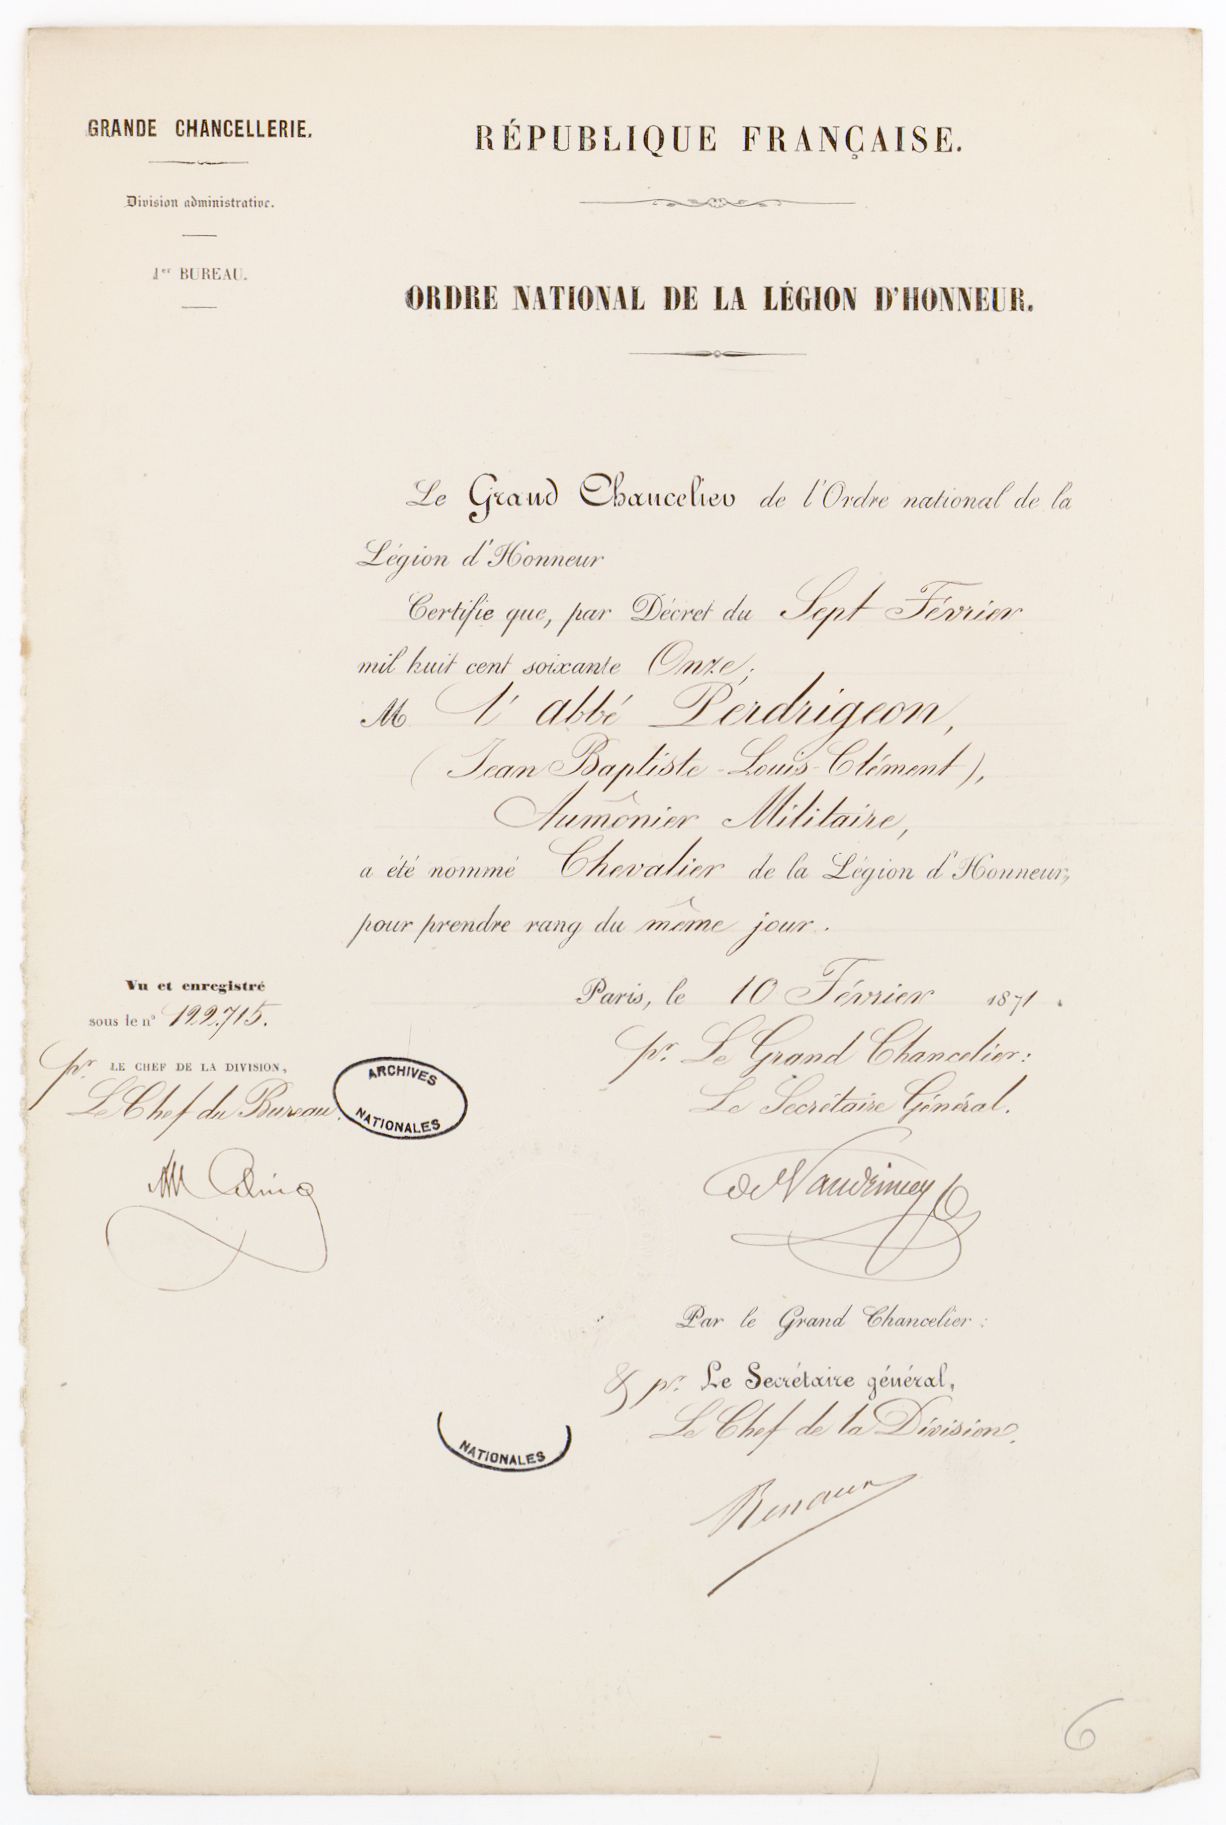 GRANDE CHANCELLERIE.
Division administrative.
1er BUREAU.
RÉPUBLIQUE FRANÇAISE.
ORDRE NATIONAL DE LA LÉGION D'HONNEUR.
Le Grand Chancelier de l'Ordre national de la
Légion d'Honneur
Certifie que, par Décret du Sept Février
mil huit cent soixante Onze;
M l'abbé Perdrigeon,
(Jean Baptiste-Louis-Clément),
Aumônier Militaire,
a été nommé Chevalier de la Légion d'Honneur,
pour prendre rang du même jour.
Paris, le 10 Février 1871.
pr. Le Grand Chancelier:
Le Secrétaire Général.
de Vaudrimey
Vu et enregistré
sous le n° 122.715.
pr. LE CHEF DE LA DIVISION,
Le Chef du Bureau.
ARCHIVES
NATIONALES
Par le Grand Chancelier:
& pr. Le Secrétaire général,
Le Chef de la Division.
NATIONALES
6